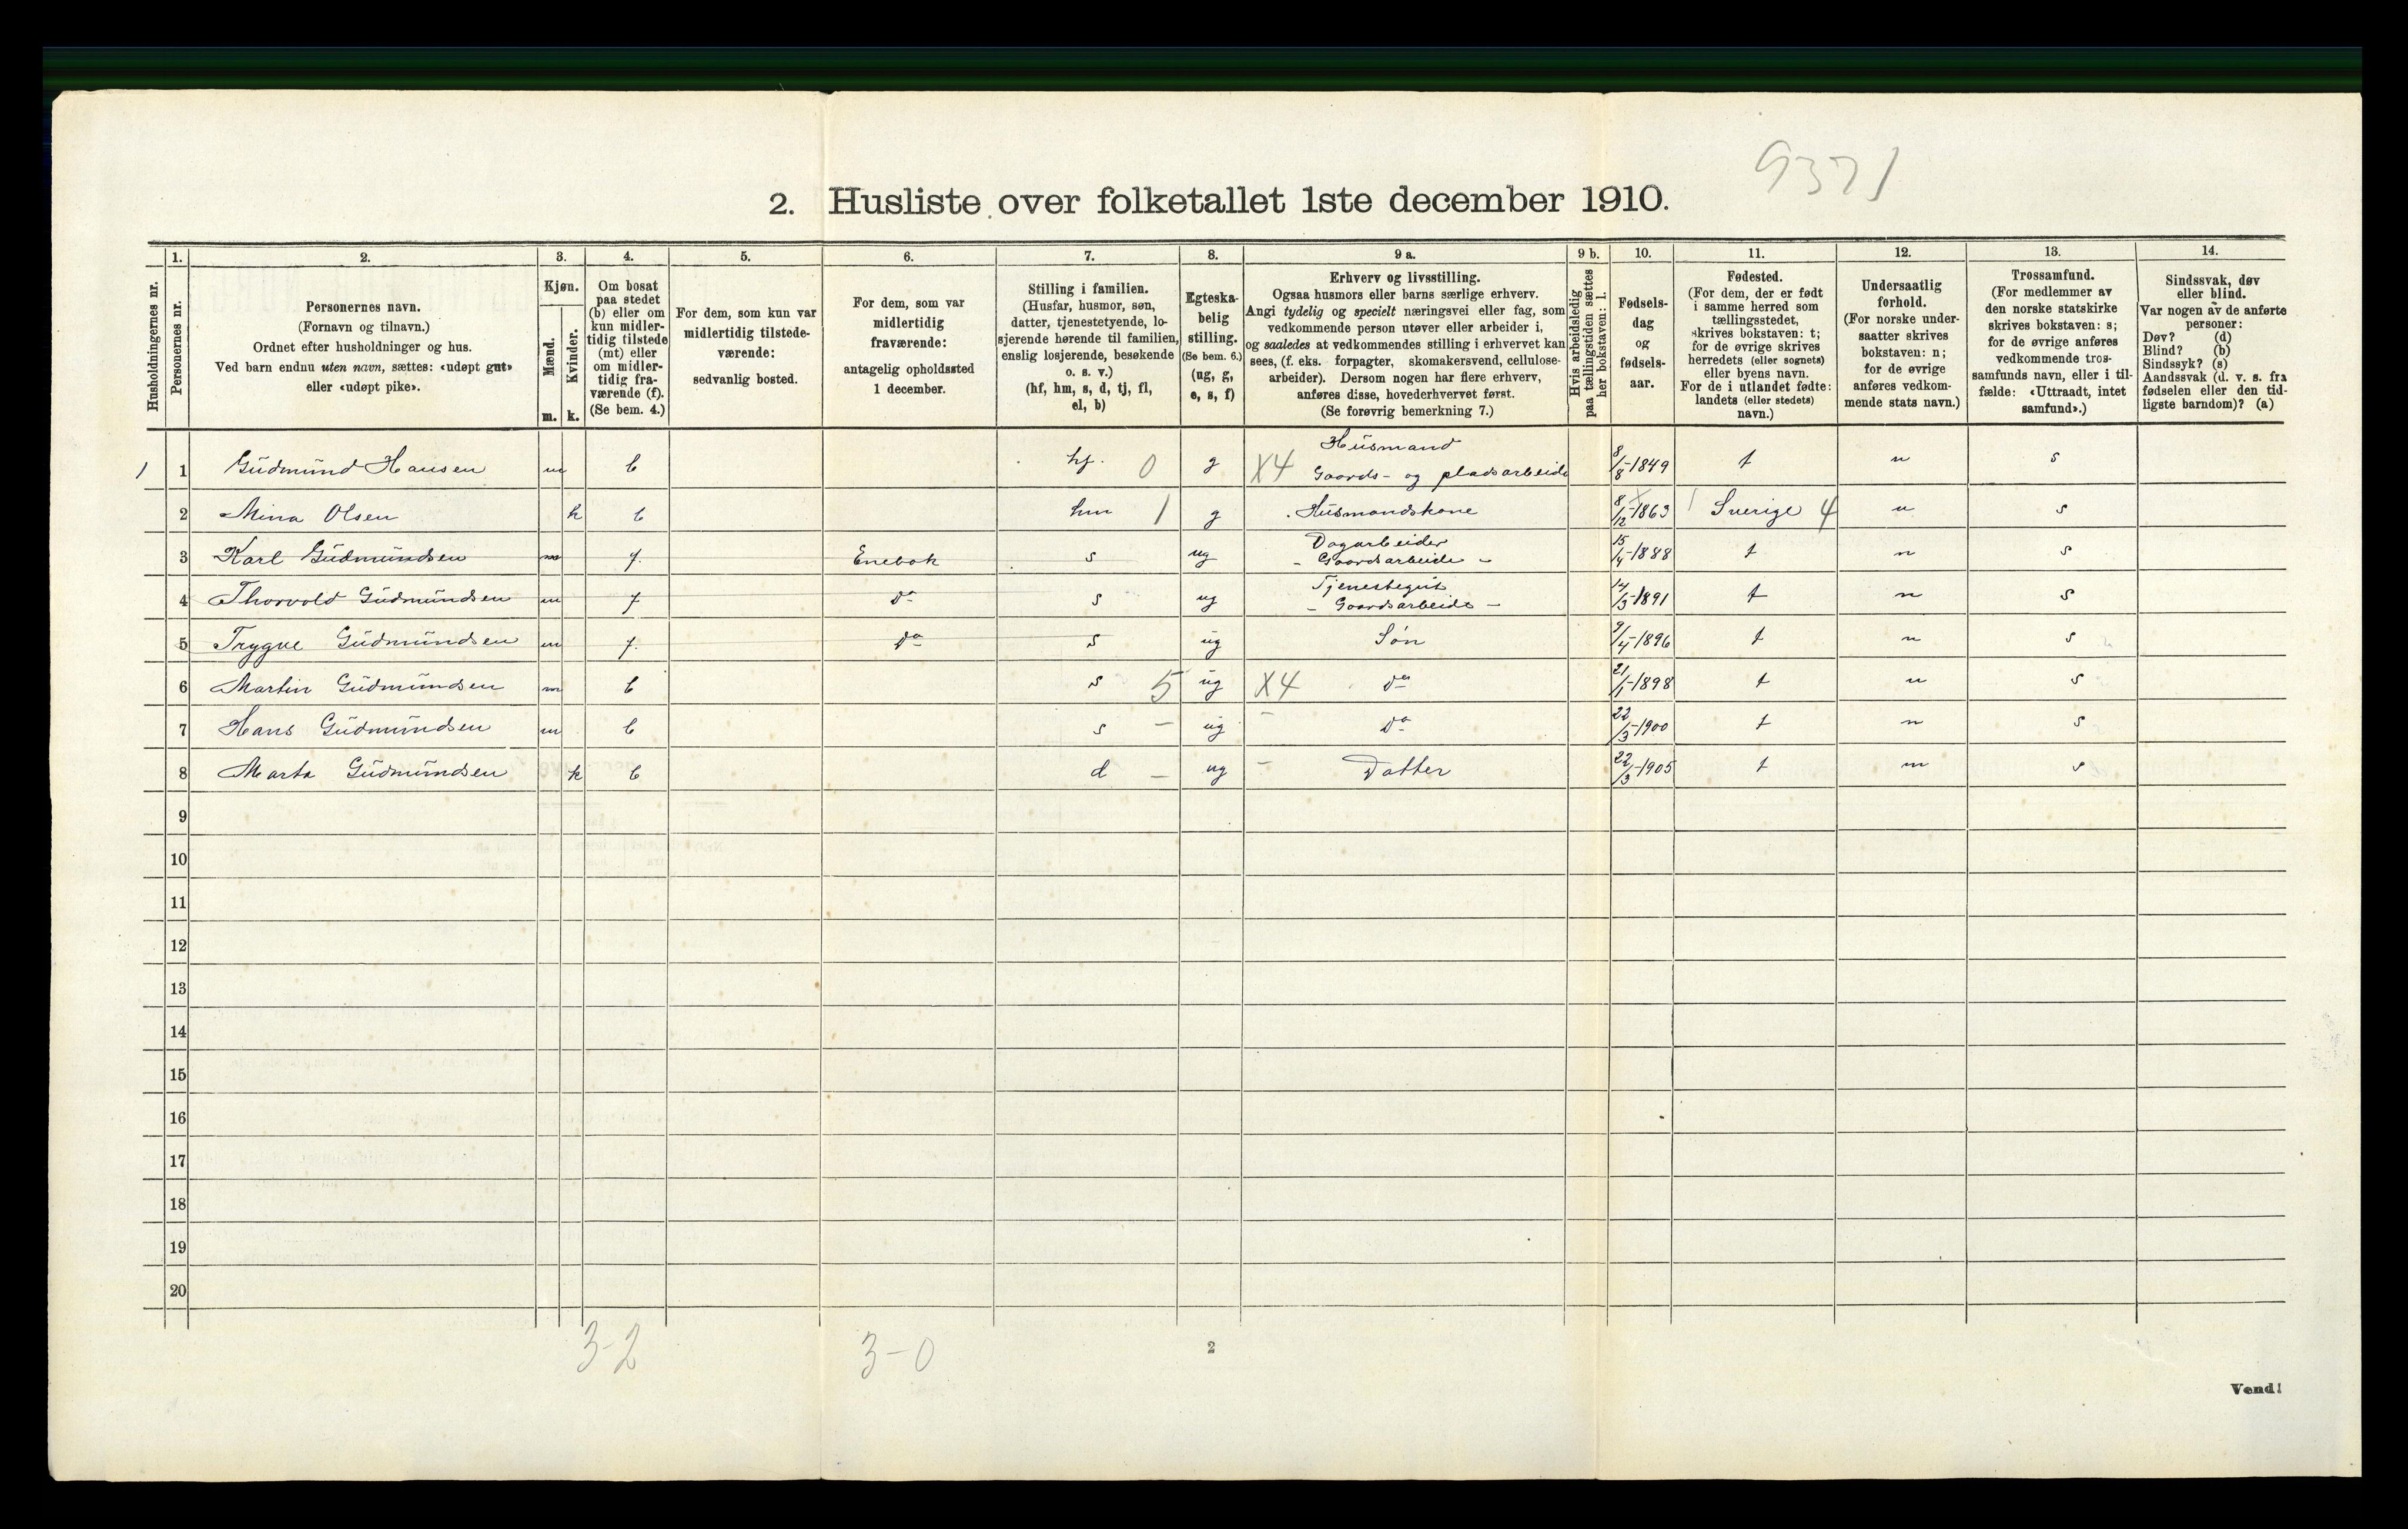 9371
2. Husliste over folketallet 1ste december 1910.
Husholdningernes nr.
1. Personernes nr.
2. Personernes navn.
(Fornavn og tilnavn.)
Ordnet efter husholdninger og hus.
Ved barn endnu uten navn, sættes: «udøpt gut»
eller «udøpt pike».
3. Kjøn.
Mænd. m.
Kvinder. k.
4. Om bosat
paa stedet
(b) eller om
kun midler-
tidig tilstede
(mt) eller
om midler-
tidig fra-
værende (f).
(Se bem. 4.)
5. For dem, som kun var
midlertidig tilstede-
værende:
sedvanlig bosted.
6. For dem, som var
midlertidig
fraværende:
antagelig opholdssted
1 december.
7. Stilling i familien.
(Husfar, husmor, søn,
datter, tjenestetyende, lo-
sjerende hørende til familien,
enslig losjerende, besøkende
o. s. v.)
(hf, hm, s, d, tj, fl,
el, b)
8. Egteska-
belig
stilling.
(Se bem. 6.)
(ug, g,
e, s, f)
9 a. Erhverv og livsstilling.
Ogsaa husmors eller barns særlige erhverv.
Angi tydelig og specielt næringsvei eller fag, som
vedkommende person utøver eller arbeider i,
og saaledes at vedkommendes stilling i erhvervet kan
sees, (f. eks. forpagter, skomakersvend, cellulose-
arbeider). Dersom nogen har flere erhverv,
anføres disse, hovederhvervet først.
(Se forøvrig bemerkning 7.)
9 b. Hvis arbeidsledig
paa tællingstiden sættes
her bokstaven: l.
10. Fødsels-
dag
og
fødsels-
aar.
11. Fødested.
(For dem, der er født
i samme herred som
tællingsstedet,
skrives bokstaven: t;
for de øvrige skrives
herredets (eller sognets)
eller byens navn.
For de i utlandet fødte:
landets (eller stedets)
navn.)
12. Undersaatlig
forhold.
(For norske under-
saatter skrives
bokstaven: n;
for de øvrige
anføres vedkom-
mende stats navn.)
13. Trossamfund.
(For medlemmer av
den norske statskirke
skrives bokstaven: s;
for de øvrige anføres
vedkommende tros-
samfunds navn, eller i til-
fælde: «Uttraadt, intet
samfund».)
14. Sindssvak, døv
eller blind.
Var nogen av de anførte
personer:
Døv? (d)
Blind? (b)
Sindssyk? (s)
Aandssvak (d. v. s. fra
fødselen eller den tid-
ligste barndom)? (a)
1 1 Gudmund Hansen m b hf. 0 g X4 Husmand Gaards- og pladsarbeide 8/8-1849 t n s
2 Mina Olsen k b hm 1 g Husmandskone 8/12-1863 Sverige 4 n s
3 Karl Gudmundsen m f. Enebak s ug Dagarbeider - Gaardsarbeide - 15/4-1888 t n s
4 Thorvald Gudmundsen m f do s ug Tjenestegut - Gaardsarbeide - 14/3-1891 t n s
5 Trygve Gudmundsen m f. do s ug Søn 9/4-1896 t n s
6 Martin Gudmundsen m b s 5 ug X4 do 21/1-1898 t n s
7 Hans Gudmundsen m b s - ug - do 22/3-1900 t n s
8 Marta Gudmundsen k b d - ug - Datter 22/3-1905 t n s
9
10
11
12
13
14
15
16
17
18
19
20
3-2 3-0 2
Vend!